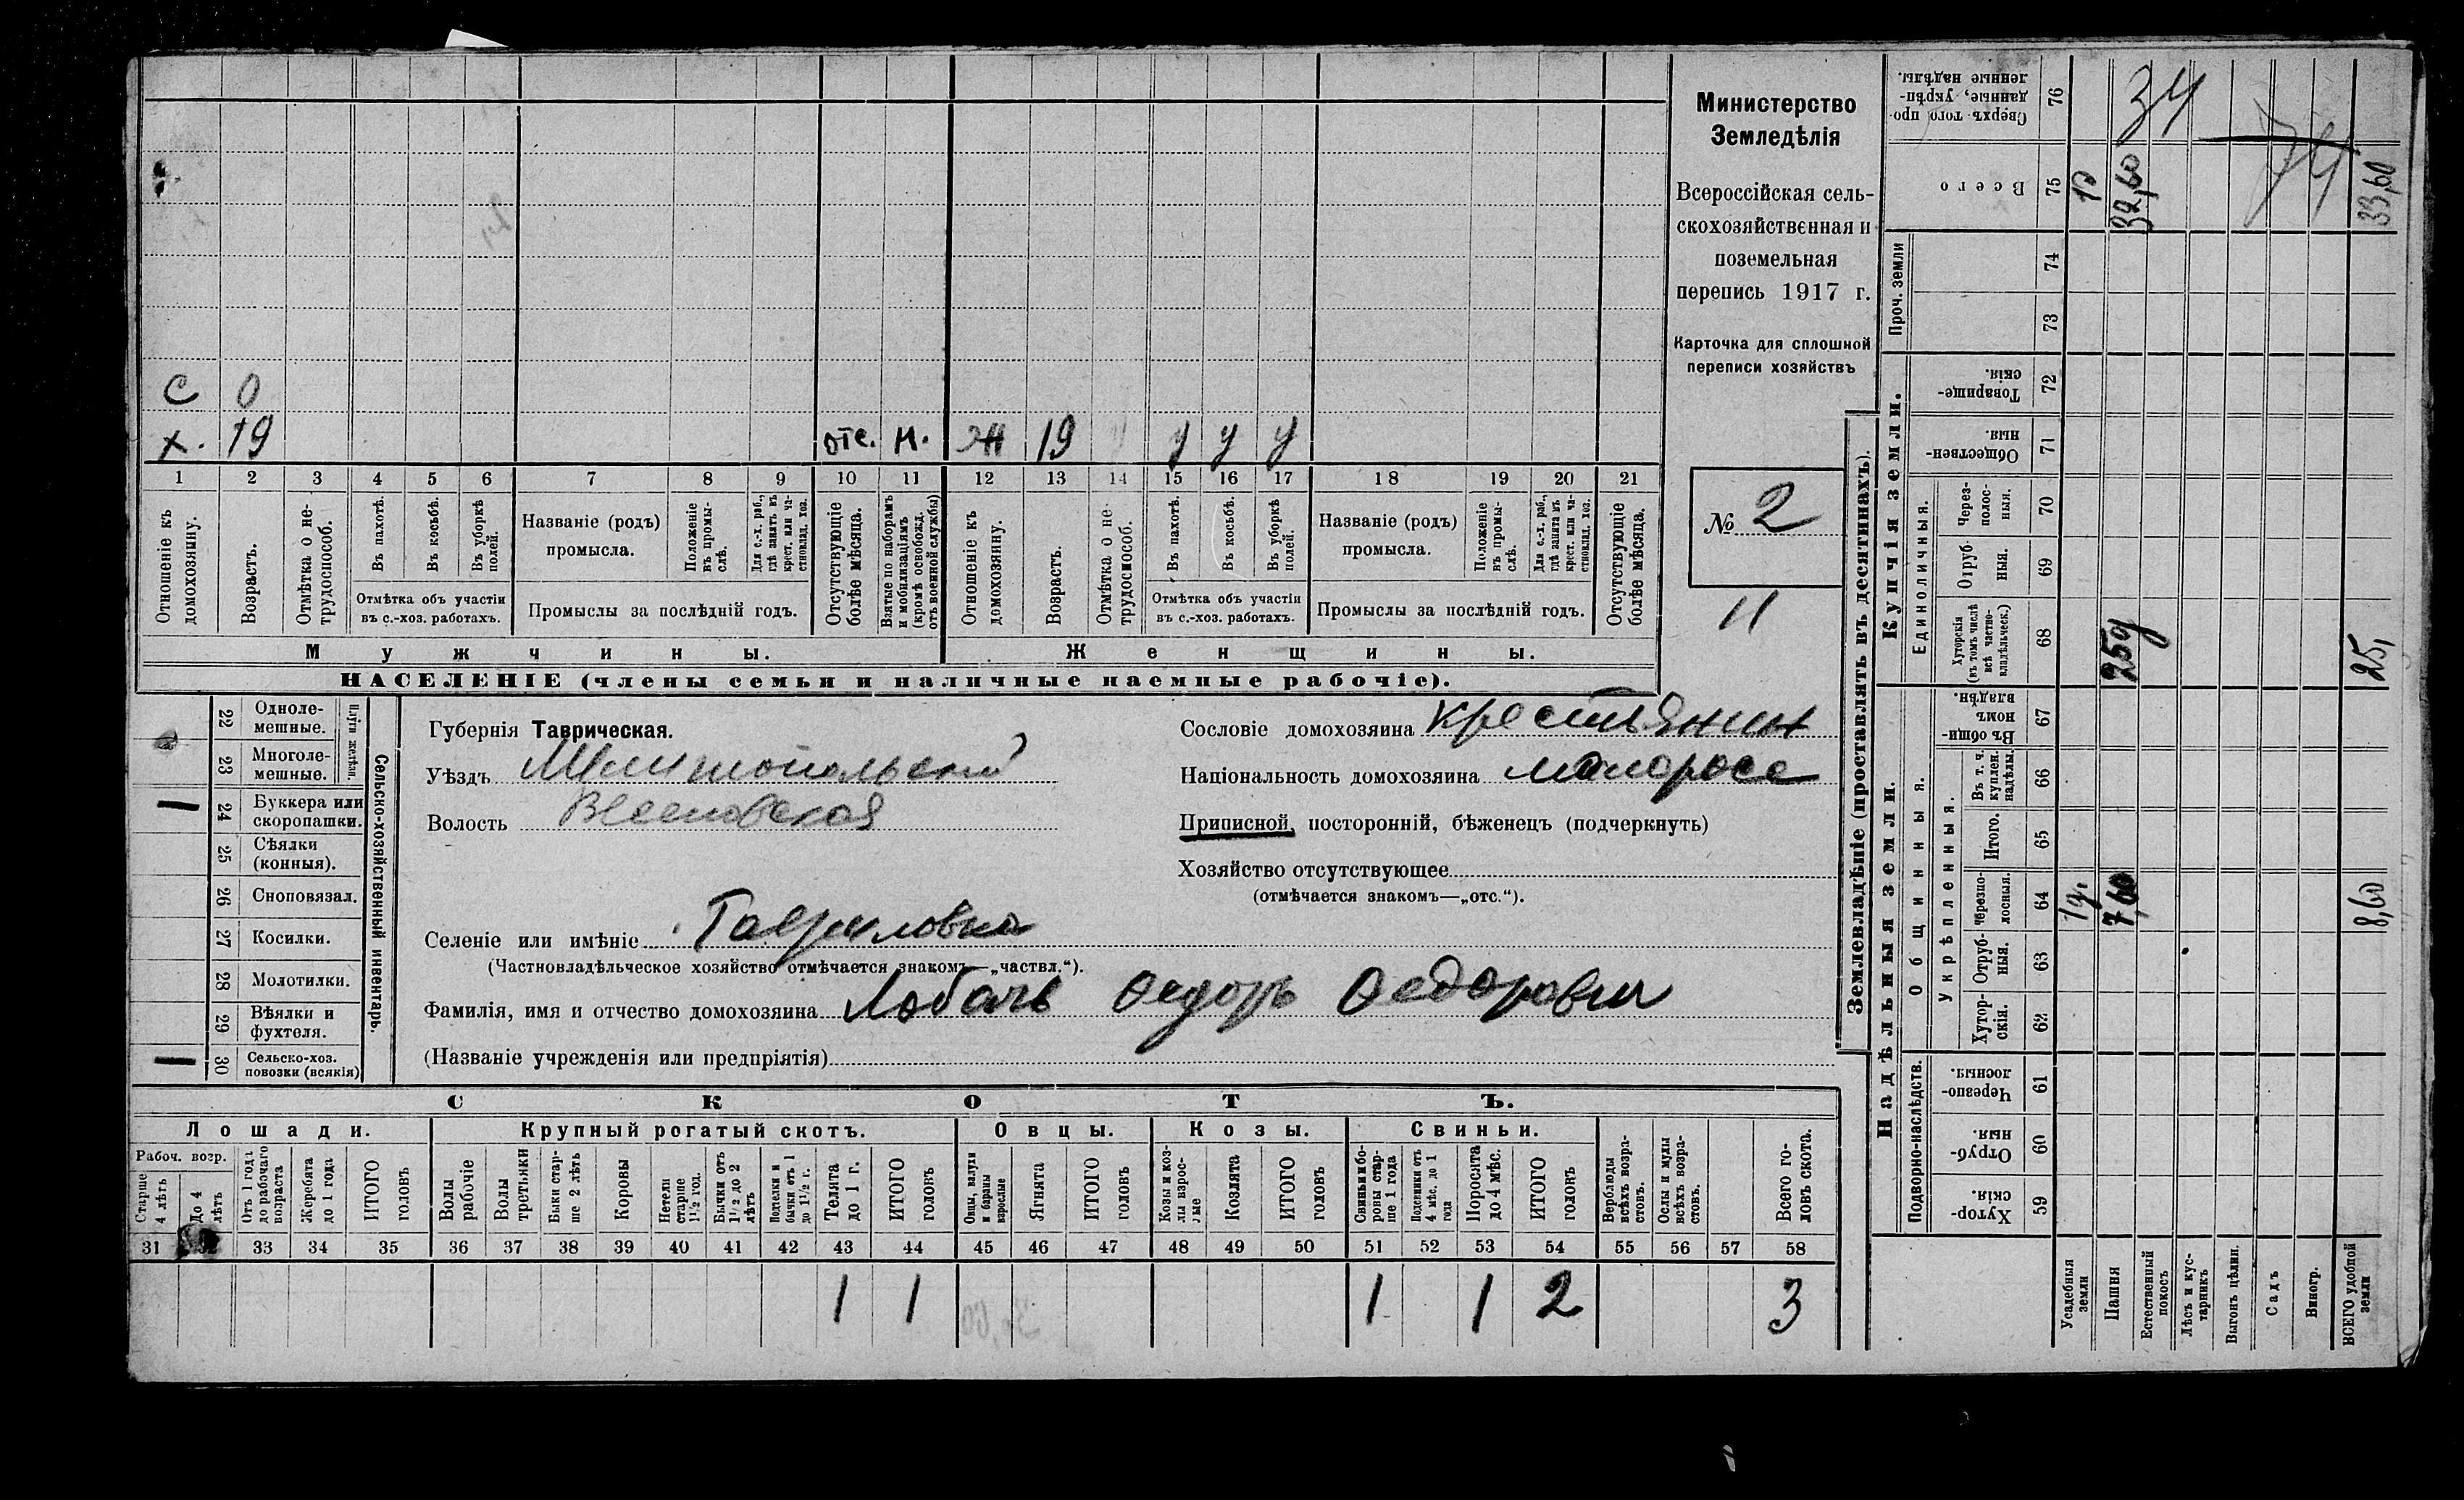 С 0
х. 19 отс. м. Ж 19 у у у
1 2 3 4 5 6 7 8 9 10 11 12 13 14 15 16 17 18 19 20 21
Отношеніе къ домохозяину.
Возрастъ.
Отмѣтка о не-
трудоспособ.
Въ пахотѣ.
Въ косьбѣ.
Въ уборкѣ
полей.
Отмѣтка объ участіи
въ с.-хоз. работахъ.
Названіе (родъ)
промысла.
Положеніе
въ промы-
слѣ.
Для с.-х. раб.,
гдѣ занятъ въ
крест. или ча-
стновлад. хоз.
Промыслы за послѣдній годъ.
Отсутствующіе
болѣе мѣсяца.
Взятые по наборамъ
и мобилизаціямъ
(кромѣ освобожд.
отъ военной службы)
Отношеніе къ
домохозяину.
Возрастъ.
Отмѣтка о не-
трудоспособ.
Въ пахотѣ.
Въ косьбѣ.
Въ уборкѣ
полей.
Отмѣтка объ участіи
въ с.-хоз. работахъ.
Названіе (родъ)
промысла.
Положеніе
въ промы-
слѣ.
Для с.-х. раб.,
гдѣ занята въ
крест. или ча-
стновлад. хоз.
Промыслы за послѣдній годъ.
Отсутствующіе
болѣе мѣсяца.
Мужчины.
Женщины.
НАСЕЛЕНІЕ (члены семьи и наличные наемные рабочіе).
Министерство
Земледѣлія
Всероссійская сель-
скохозяйственная и
поземельная
перепись 1917 г.
Карточка для сплошной
переписи хозяйствъ
№ 2
11
22 Одноле-
мешные.
23 Многоле-
мешные.
Плуги желѣзн.
24 Буккера или
скоропашки.
25 Сѣялки
(конныя).
26 Сноповязал.
27 Косилки.
28 Молотилки.
29 Вѣялки и
фухтеля.
30 Сельско-хоз.
повозки (всякія)
Сельско-хозяйственный инвентарь.
Губернія Таврическая.
Уѣздъ Мелитопольский
Волость Веселовская
Селеніе или имѣніе Гавриловка
(Частновладѣльческое хозяйство отмѣчается знакомъ—„частвл.“).
Фамилія, имя и отчество домохозяина Лобачъ Федоръ Федорович
(Названіе учрежденія или предпріятія)
Сословіе домохозяина крестьянин
Національность домохозяина малоросс
Приписной, посторонній, бѣженецъ (подчеркнуть)
Хозяйство отсутствующее
(отмѣчается знакомъ—„отс.“).
СКОТЪ.
Лошади.
Крупный рогатый скотъ.
Овцы.
Козы.
Свиньи.
Рабоч. возр.
Старше
4 лѣтъ
До 4
лѣтъ
Отъ 1 года
до рабочаго
возраста
Жеребята
до 1 года
ИТОГО
головъ
Волы
рабочіе
Волы
третьяки
Быки стар-
ше 2 лѣтъ
Коровы
Нетели
старше
1½ год.
Бычки отъ
1½ до 2
лѣтъ
Подтелки и
бычки отъ 1
до 1½ г.
Телята
до 1 г.
ИТОГО
головъ
Овцы, валухи
и бараны
взрослые
Ягнята
ИТОГО
головъ
Козы и коз-
лы взрос-
лые
Козлята
ИТОГО
головъ
Свиньи и бо-
ровы стар-
ше 1 года
Подсвинки отъ
4 мѣс. до 1
года
Поросята
до 4 мѣс.
ИТОГО
головъ
Верблюды
всѣхъ возра-
стовъ.
Ослы и мулы
всѣхъ возра-
стовъ.
Всего го-
ловъ скота.
31 32 33 34 35 36 37 38 39 40 41 42 43 44 45 46 47 48 49 50 51 52 53 54 55 56 57 58
1 1 1 1 2 3
Землевладѣніе (проставлять въ десятинахъ).
Надѣльныя земли.
Купчія земли.
Проч. земли
Подворно-наслѣдств.
Общинныя.
Укрѣпленныя.
Единоличныя.
Хутор-
скія. 59
Отруб-
ныя. 60
Черезпо-
лосныя. 61
Хутор-
скія. 62
Отруб-
ныя. 63
Черезпо-
лосныя. 64
Итого. 65
Въ т. ч.
куплен.
надѣлы. 66
Въ общи-
номъ
владѣн. 67
Хуторскія
(въ томъ числѣ
всѣ частно-
владѣльческ.) 68
Отруб-
ныя. 69
Через-
полос-
ныя. 70
Обществен-
ныя. 71
Товарище-
скія. 72
73
74
Всего 75
Сверхъ того про-
данные, укрѣп-
ленные надѣлы. 76
Усадебныя
земли 1д. 1д
Пашня 7,60 25д 32,60 34
Естественный
покосъ
Лѣсъ и кус-
тарникъ
Выгонъ цѣлин.
Садъ
Виногр.
ВСЕГО удобной
земли 8,60 25, 33,60